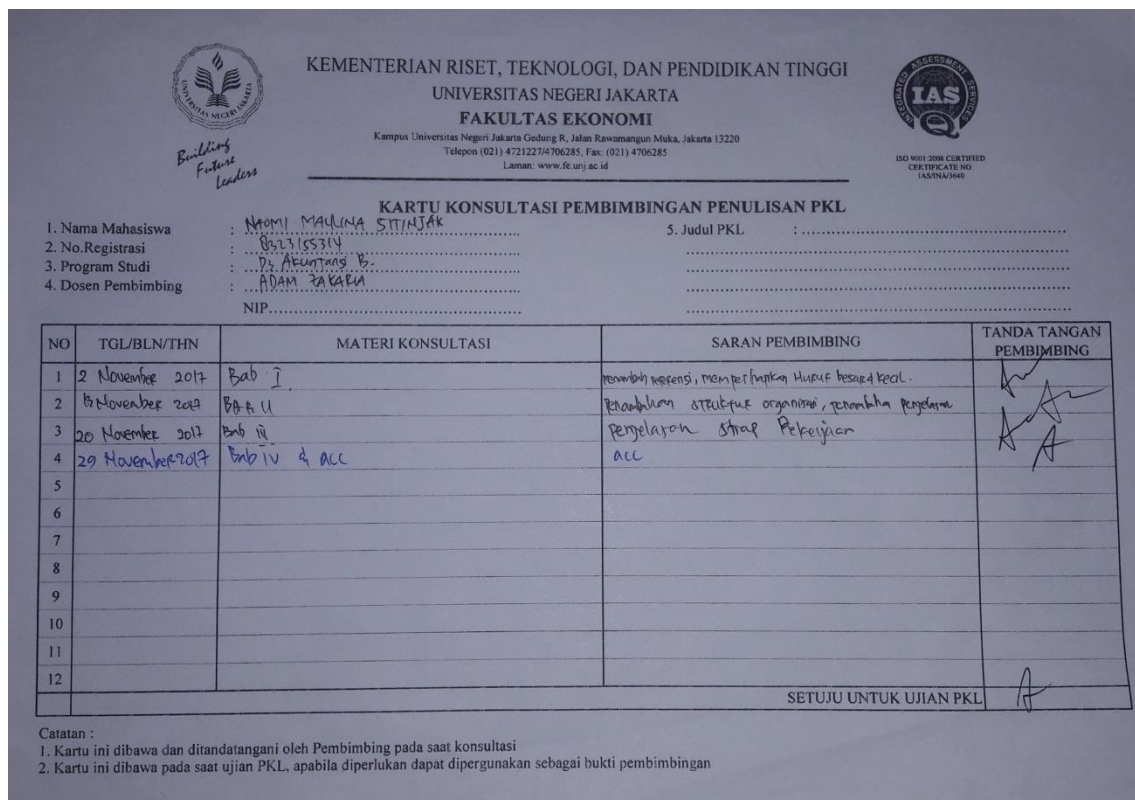 KEMENTERIAN RISET, TEKNOLOGI, DAN PENDIDIKAN TINGGI
UNIVERSITAS NEGERI JAKARTA
FAKULTAS EKONOMI
Kampus Universitas Negeri Jakarta Gedung R, Jalan Rawamangun Muka, Jakarta 13220
Telepon (021) 4721227/4706285, Fax: (021) 4706285
Laman: www.fe.unj.ac.id
UNIVERSITAS NEGERI JAKARTA
Building
Future
Leaders
INTEGRATED ASSESSMENT SERVICES
IAS
ISO 9001:2008 CERTIFIED
CERTIFICATE NO.
IAS/INA/3640
KARTU KONSULTASI PEMBIMBINGAN PENULISAN PKL
1. Nama Mahasiswa : NAOMI MAULINA SITINJAK
2. No.Registrasi : 8323155314
3. Program Studi : D3 Akuntansi B.
4. Dosen Pembimbing : ADAM ZAKARIA
NIP
5. Judul PKL :
NO TGL/BLN/THN MATERI KONSULTASI SARAN PEMBIMBING TANDA TANGAN PEMBIMBING
1 2 November 2017 Bab I menambah referensi, memperhatikan Huruf besar & kecil.
2 November 2017 BAB II Penambahan struktur organisasi, penambahan penjelasan
3 20 November 2017 Bab III penjelasan Pekerjaan
4 29 November 2017 Bab IV & acc acc
5
6
7
8
9
10
11
12
SETUJU UNTUK UJIAN PKL
Catatan :
1. Kartu ini dibawa dan ditandatangani oleh Pembimbing pada saat konsultasi
2. Kartu ini dibawa pada saat ujian PKL, apabila diperlukan dapat dipergunakan sebagai bukti pembimbingan